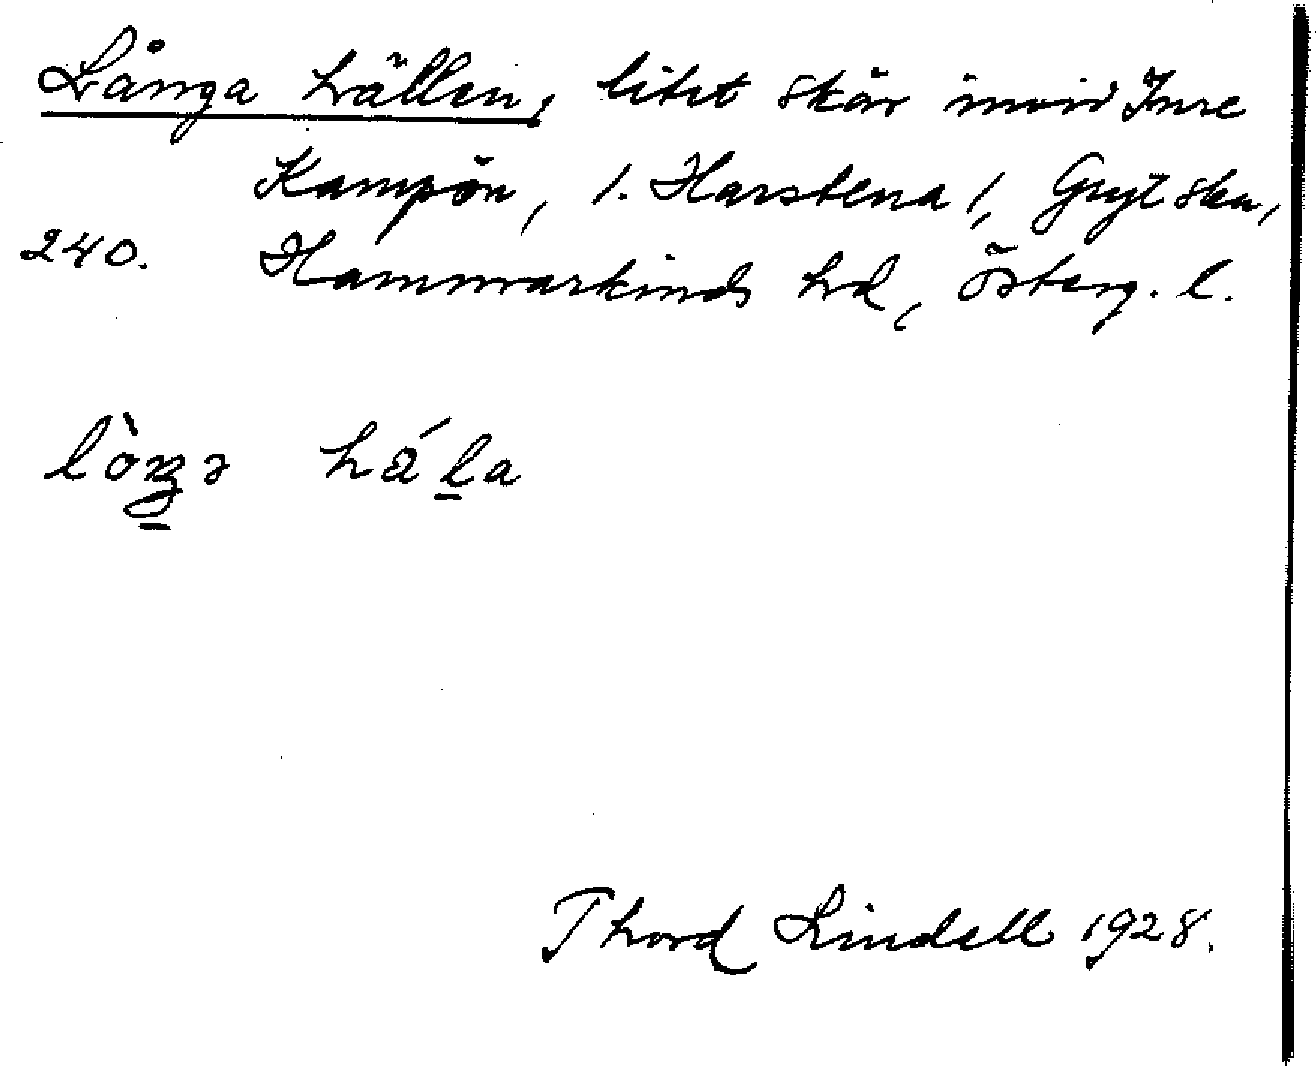 Långa hällen, litet skär invid Inre
Kampön, /. Harstena /, Gryt skn,
240. Hammarkinds hd, Österg. l.
lòŋə hǽla
Thord Lindell 1928.